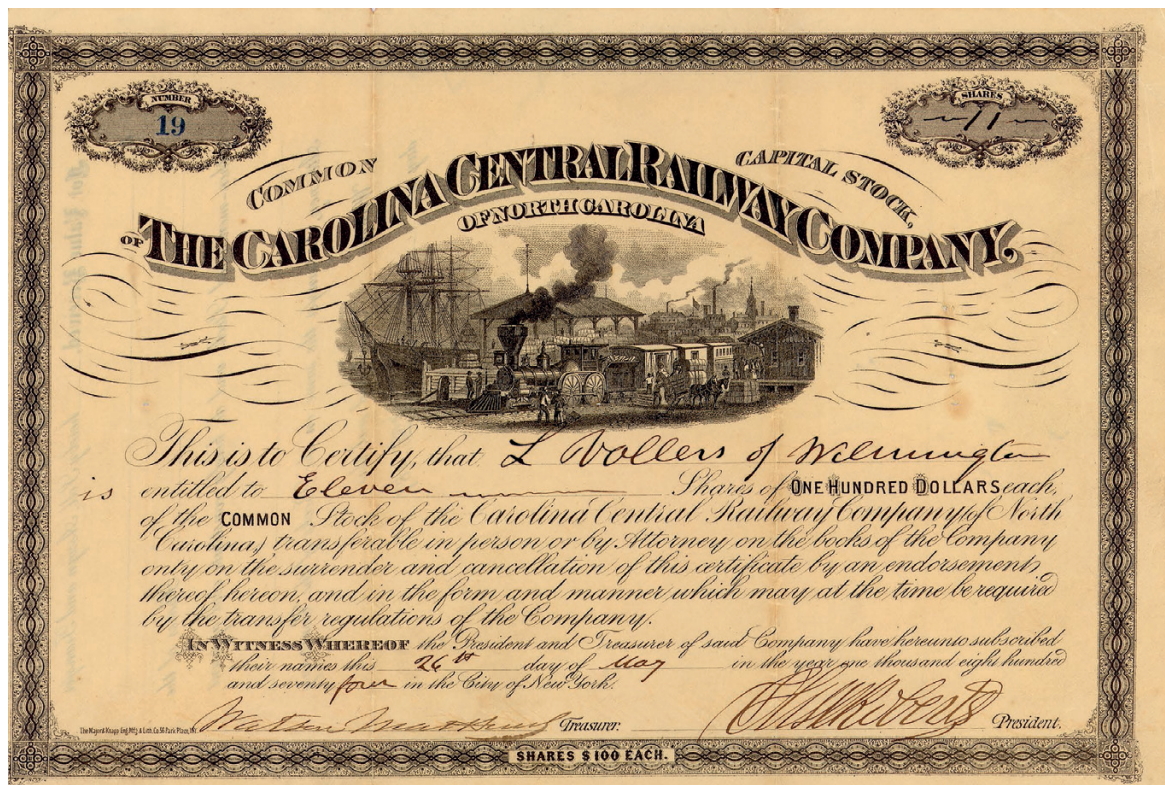 NUMBER
19
SHARES
11
COMMON
CAPITAL STOCK,
OF THE CAROLINA CENTRAL RAILWAY COMPANY,
OF NORTH CAROLINA
This is to Certify, that L Vollers of Wilmington
is entitled to Eleven Shares of ONE HUNDRED DOLLARS each,
of the COMMON Stock of the Carolina Central Railway Company (of North
Carolina,) transferable in person or by Attorney on the books of the Company
only on the surrender and cancellation of this certificate by an endorsement
thereof hereon, and in the form and manner which may at the time be required
by the transfer regulations of the Company.
IN WITNESS WHEREOF the President and Treasurer of said Company have hereunto subscribed
their names this 26th day of May in the year one thousand eight hundred
and seventy four in the City of New York.
Treasurer. President.
The Major & Knapp Eng. Mfg. & Lith. Co. 56 Park Place, N.Y.
SHARES $100 EACH.